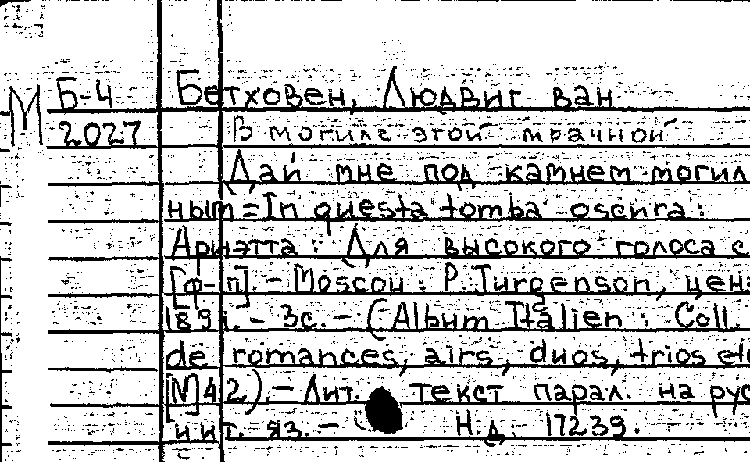 М Б-4 Бетховен, Людвиг ван
2027 В могиле этой мрачной
Дай мне под камнем могиль
ным = In questa tomba oscura:
Ариэтта: Для высокого голоса с
[ф-п]. - Moscou: P. Jurgenson, ценз
1891. - 3с. - (Album Italien: Coll.
de romances, airs, duos, trios etc
[N]42). - Лит. текст парал. на рус
и ит. яз. - Н.д. 17239.